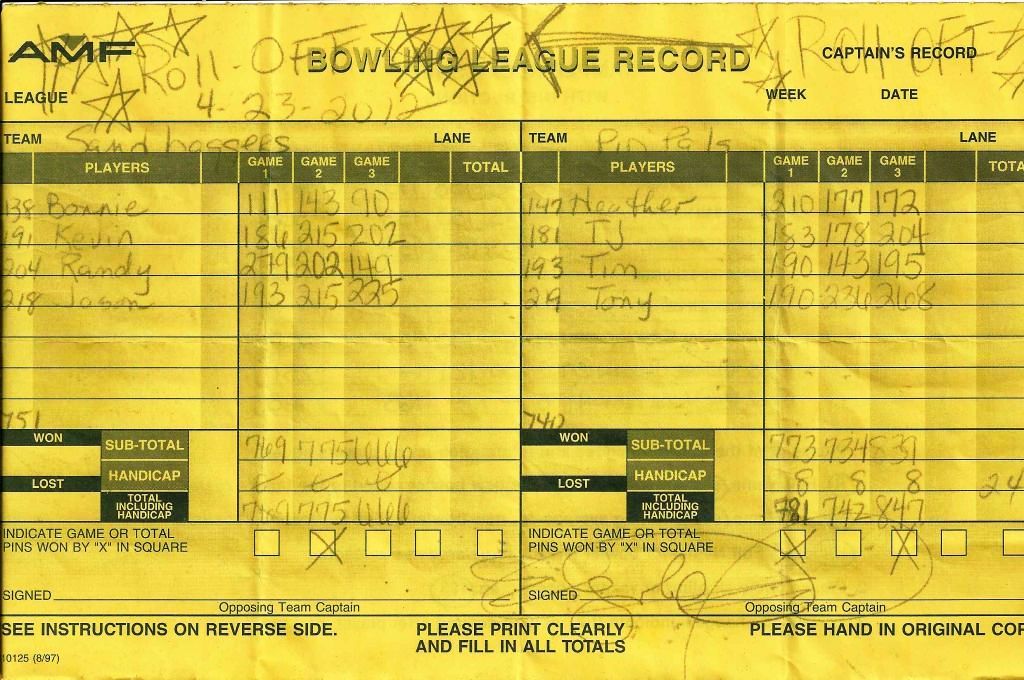 AMF Roll-Off BOWLING LEAGUE RECORD Roll OFF CAPTAIN'S RECORD
LEAGUE 4-23-2012 WEEK DATE
TEAM Sandbaggers LANE TEAM Pin Pals LANE
PLAYERS GAME 1 GAME 2 GAME 3 TOTAL PLAYERS GAME 1 GAME 2 GAME 3 TOTA
138 Bonnie 111 143 90 147 Heather 210 177 172
191 Kevin 186 215 202 181 TJ 183 178 204
204 Randy 279 202 149 193 Tim 190 143 195
218 Jason 193 215 225 219 Tony 190 236 268
751 740
WON SUB-TOTAL 769 775 666 WON SUB-TOTAL 773 734 839
LOST HANDICAP LOST HANDICAP 8 8 8 24
TOTAL INCLUDING HANDICAP 769 775 666 TOTAL INCLUDING HANDICAP 781 742 847
INDICATE GAME OR TOTAL PINS WON BY "X" IN SQUARE X INDICATE GAME OR TOTAL PINS WON BY "X" IN SQUARE X X
SIGNED SIGNED
Opposing Team Captain Opposing Team Captain
SEE INSTRUCTIONS ON REVERSE SIDE. PLEASE PRINT CLEARLY AND FILL IN ALL TOTALS PLEASE HAND IN ORIGINAL COP
10125 (8/97)